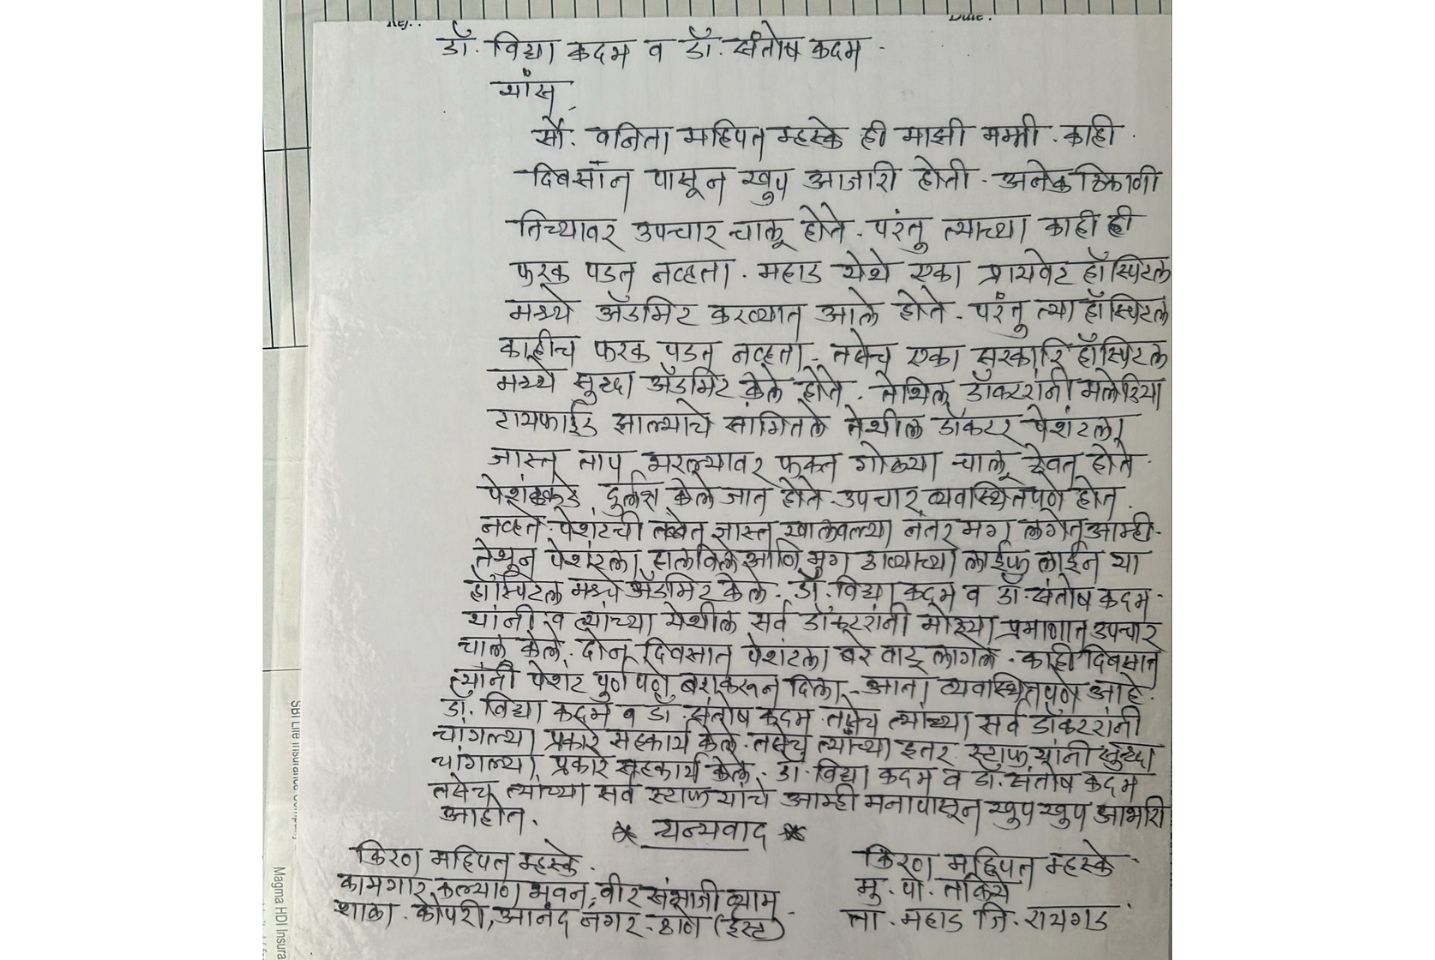 डॉ. विद्या कदम व डॉ. संतोष कदम.
यांस,
सौ. वनिता महिपत म्हस्के ही माझी मम्मी. काही
दिवसांन पासून खुप आजारी होती. अनेक ठिकाणी
तिच्यावर उपचार चालू होते. परंतु त्याच्या काही ही
फरक पडत नव्हता. महाड येथे एका प्रायवेट हॉस्पिटल
मध्ये अ‍ॅडमिट करण्यात आले होते. परंतु त्या हॉस्पिटल
काहीच फरक पडत नव्हता. तसेच एका सरकारि हॉस्पिटल
मध्ये सुध्दा अ‍ॅडमिट केले होते. तेथिल डॉक्टरांनी मलेरिया
टायफाईड झाल्याचे सांगितले तेथील डॉक्टर पेशंटला
जास्त ताप भरल्यावर फक्त गोळ्या चालू ठेवत होते.
पेशंटकडे दुर्लक्ष केले जात होते. उपचार व्यवस्थितपणे होत
नव्हते. पेशंटची तब्बेत जास्त खालवल्या नंतर मग लगेत आम्ही.
तेथून पेशंटला हालविले आणि मुग लाईफ लाईन या
हॉस्पिटल मध्ये अ‍ॅडमिट केले. डॉ. विद्या कदम व डॉ संतोष कदम.
यांनी व त्यांच्या येथील सर्व डॉक्टरांनी मोठ्या प्रमाणात उपचार
चालू केले. दोन दिवसात पेशंटला बरे वाटू लागले. काही दिवसात
त्यांनी पेशंट पुर्ण पणे बरा करून दिला. आता व्यवस्थितपणे आहे.
डॉ. विद्या कदम व डॉ. संतोष कदम तसेच त्यांच्या सर्व डॉक्टरांनी
चांगल्या प्रकारे सहकार्य केले. तसेच त्यांच्या इतर स्टाफ यांनी सुध्दा
चांगल्या प्रकारे सहकार्य केले. डॉ. विद्या कदम व डॉ. संतोष कदम
तसेच त्यांच्या सर्व स्टाफ यांचे आम्ही मनापासून खुप खुप आभारी
आहोत.
* धन्यवाद *
किरण महिपत म्हस्के.
कामगार कल्याण भवन, वीर संभाजी व्यायाम
शाळा. कोपरी, आनंद नगर. ठाणे (ईस्ट)
किरण महिपत म्हस्के.
मु. पो.
ता. महाड जि. रायगड.
SBI Life Insurance
Magma HDI Insura